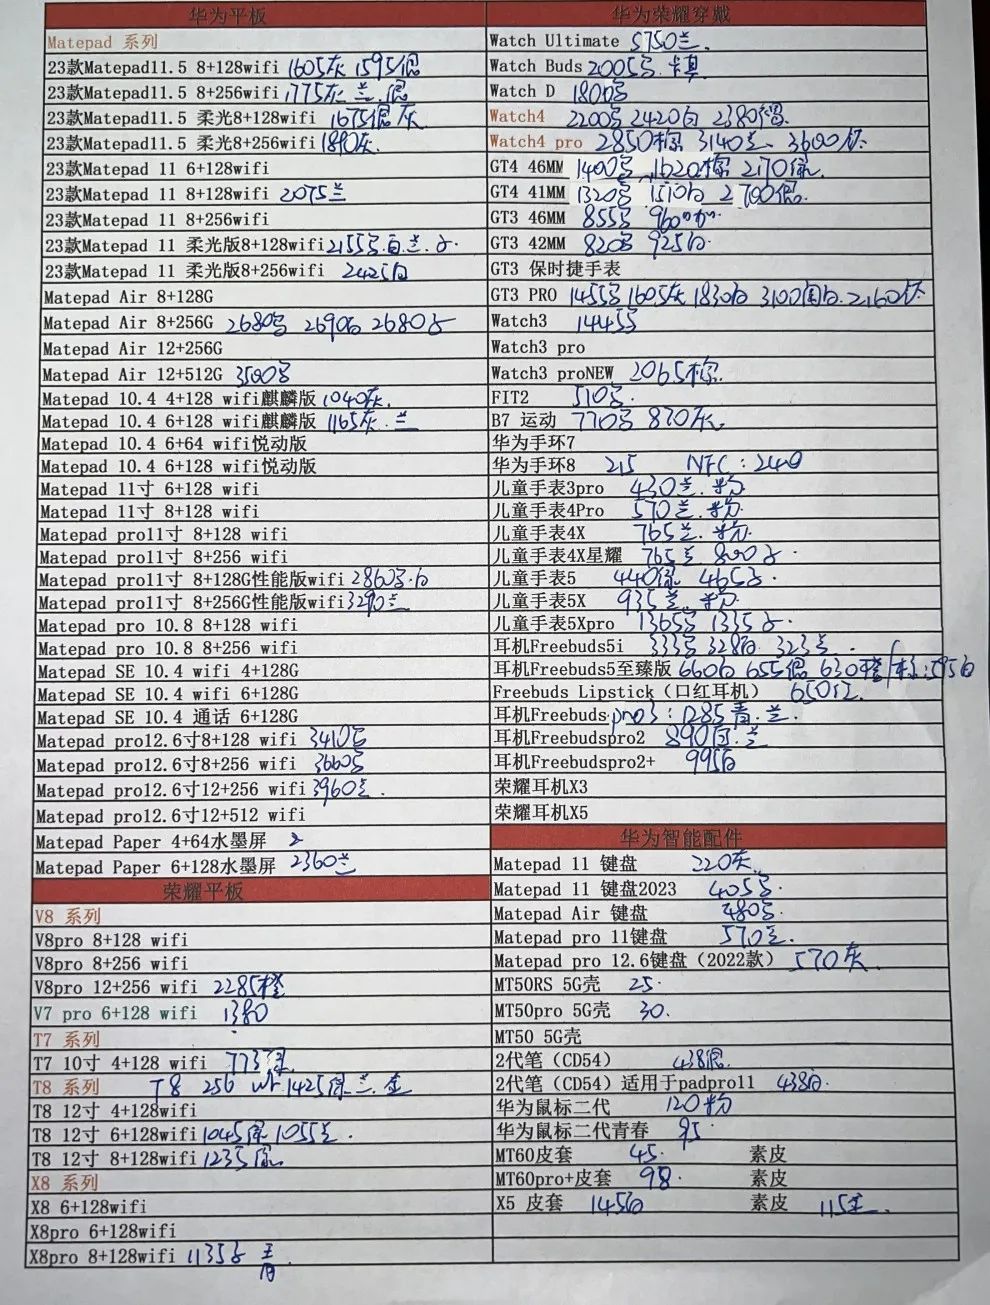 华为平板
Matepad 系列
23款Matepad11.5 8+128wifi 1605灰 1595银
23款Matepad11.5 8+256wifi 1775灰.兰.银
23款Matepad11.5 柔光8+128wifi 1675银灰
23款Matepad11.5 柔光8+256wifi 1890灰.
23款Matepad 11 6+128wifi
23款Matepad 11 8+128wifi 2075兰
23款Matepad 11 8+256wifi
23款Matepad 11 柔光版8+128wifi 2155.白.兰.
23款Matepad 11 柔光版8+256wifi 2425白
Matepad Air 8+128G
Matepad Air 8+256G 2680 2690白 2680
Matepad Air 12+256G
Matepad Air 12+512G 3500
Matepad 10.4 4+128 wifi麒麟版 1040灰.
Matepad 10.4 6+128 wifi麒麟版 1165灰.兰
Matepad 10.4 6+64 wifi悦动版
Matepad 10.4 6+128 wifi悦动版
Matepad 11寸 6+128 wifi
Matepad 11寸 8+128 wifi
Matepad pro11寸 8+128 wifi
Matepad pro11寸 8+256 wifi
Matepad pro11寸 8+128G性能版wifi 2860.白
Matepad pro11寸 8+256G性能版wifi 3290兰
Matepad pro 10.8 8+128 wifi
Matepad pro 10.8 8+256 wifi
Matepad SE 10.4 wifi 4+128G
Matepad SE 10.4 wifi 6+128G
Matepad SE 10.4 通话 6+128G
Matepad pro12.6寸8+128 wifi 3410
Matepad pro12.6寸8+256 wifi 3660
Matepad pro12.6寸12+256 wifi 3960兰.
Matepad pro12.6寸12+512 wifi
Matepad Paper 4+64水墨屏
Matepad Paper 6+128水墨屏 2360兰
荣耀平板
V8 系列
V8pro 8+128 wifi
V8pro 8+256 wifi
V8pro 12+256 wifi 2285橙
V7 pro 6+128 wifi 1380
T7 系列
T7 10寸 4+128 wifi 773
T8 系列 T8 256 wifi 1425银.兰.金
T8 12寸 4+128wifi
T8 12寸 6+128wifi 1045银 1055兰.
T8 12寸 8+128wifi 1235银.
X8 系列
X8 6+128wifi
X8pro 6+128wifi
X8pro 8+128wifi 1135 青
华为荣耀穿戴
Watch Ultimate 5750兰.
Watch Buds 2005.卡其
Watch D 1800
Watch4 2200 2420白 2380褐.
Watch4 pro 2850棕 3140兰 3600钛.
GT4 46MM 1400 1620棕 2170银.
GT4 41MM 1320 1510白 2700银.
GT3 46MM 855 960
GT3 42MM 820 925白.
GT3 保时捷手表
GT3 PRO 1455 1605灰 1830白 3100陶白.2160钛
Watch3 1445
Watch3 pro
Watch3 proNEW 2065棕.
FIT2 510.
B7 运动 770 870灰.
华为手环7
华为手环8 215 NFC：240
儿童手表3pro 430兰.粉
儿童手表4Pro 570兰.粉.
儿童手表4X 765兰.粉.
儿童手表4X星耀 765兰 800
儿童手表5 440 465.
儿童手表5X 935兰.粉.
儿童手表5Xpro 1365 1335.
耳机Freebuds5i 333 328白 323兰
耳机Freebuds5至臻版 660白 655银 630橙/标:595白
Freebuds Lipstick（口红耳机） 650红.
耳机Freebuds pro3：1285青.兰.
耳机Freebudspro2 890白.兰
耳机Freebudspro2+ 995白
荣耀耳机X3
荣耀耳机X5
华为智能配件
Matepad 11 键盘 220灰.
Matepad 11 键盘2023 405.
Matepad Air 键盘 480.
Matepad pro 11键盘 570兰.
Matepad pro 12.6键盘（2022款） 570灰.
MT50RS 5G壳 25.
MT50pro 5G壳 30.
MT50 5G壳
2代笔（CD54） 438银.
2代笔（CD54）适用于padpro11 438白.
华为鼠标二代 120粉
华为鼠标二代青春 95.
MT60皮套 45. 素皮
MT60pro+皮套 98. 素皮
X5 皮套 145白 素皮 115